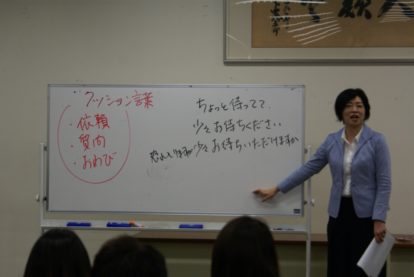 クッション言葉
・依頼
・質問
・おわび
ちょっと待ってて
少々お待ちください
恐れ入りますが少々お待ちいただけますか